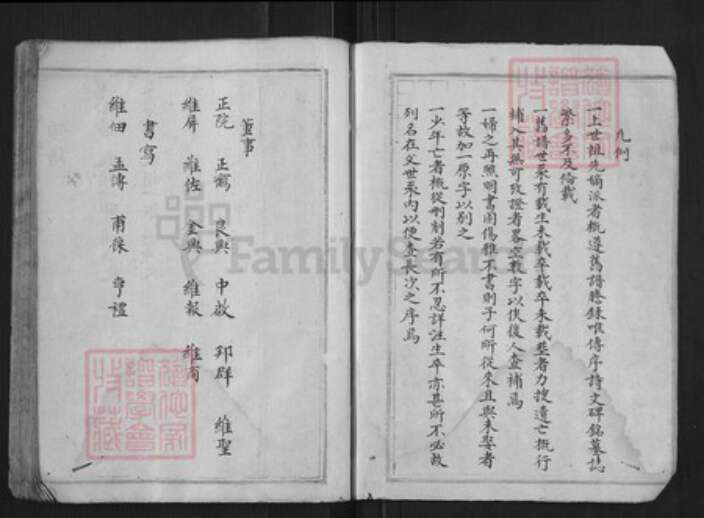 凡例
一上世祖先嫡派者概遵舊譜謄錄唯傳序詩文碑銘墓誌
繁多不及倫載
一舊譜世系有載生未載卒載卒未載塟者力搜遺亡概行
補入其無可攷證者畧空數字以俟後人查補焉
一婦之再熙明書固傷雅不書則子何所從來且與未娶者
等故加一原字以別之
一少年亡者概從刪刻若有所不忍詳注生卒亦甚所不必故
列名在父世系內以便查長次之序焉
董事
正院 正 良興 中啟 邦群 維聖
維屏 維佐 金興 維報 維
書寫
維佃 孟傳 甫 亨禮
FamilySearch